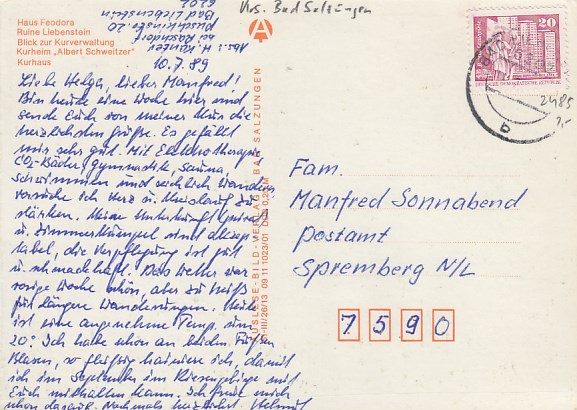 Krs. Bad Salzungen
Haus Feodora
Ruine Liebenstein
Blick zur Kurverwaltung
Kurheim „Albert Schweitzer"
Kurhaus
Abs.: H. Künter
bei Raschdorf
Ruschkinstr. 20
Bad Liebenstein
6202
10.7.89
Liebe Helga, lieber Manfred!
Bin heute eine Woche hier und
sende Euch von meiner Kur die
herzlichsten Grüße. Es gefällt
mir sehr gut. Mit Elektrotherapie,
CO2-Bäder, Gymnastik, Sauna,
schwimmen und reichlich wandern
versuche ich Herz u. Kreislauf zu
stärken. Meine Unterkunft
u. Zimmerkumpel sind akzep-
tabel, die Verpflegung ist gut
u. schmackhaft. Das Wetter war
vorige Woche schön, aber zu heiß
für längere Wanderungen. Heute
ist eine angenehme Temp. um
20°. Ich habe schon an beiden Füßen
Blasen, so fleißig trainiere ich, damit
ich im September im Riesengebirge mit
Euch mithalten kann. Ich freue mich
schon darauf. Nochmals herzlichst Helmut
AUSLESE-BILD-VERLAG · BAD SALZUNGEN
III/26/13 09 11 1023/01 DDR 0,20 M
20
DEUTSCHE DEMOKRATISCHE REPUBLIK
b
2485
2,-
Fam.
Manfred Sonnabend
Postamt
Spremberg N/L
7590